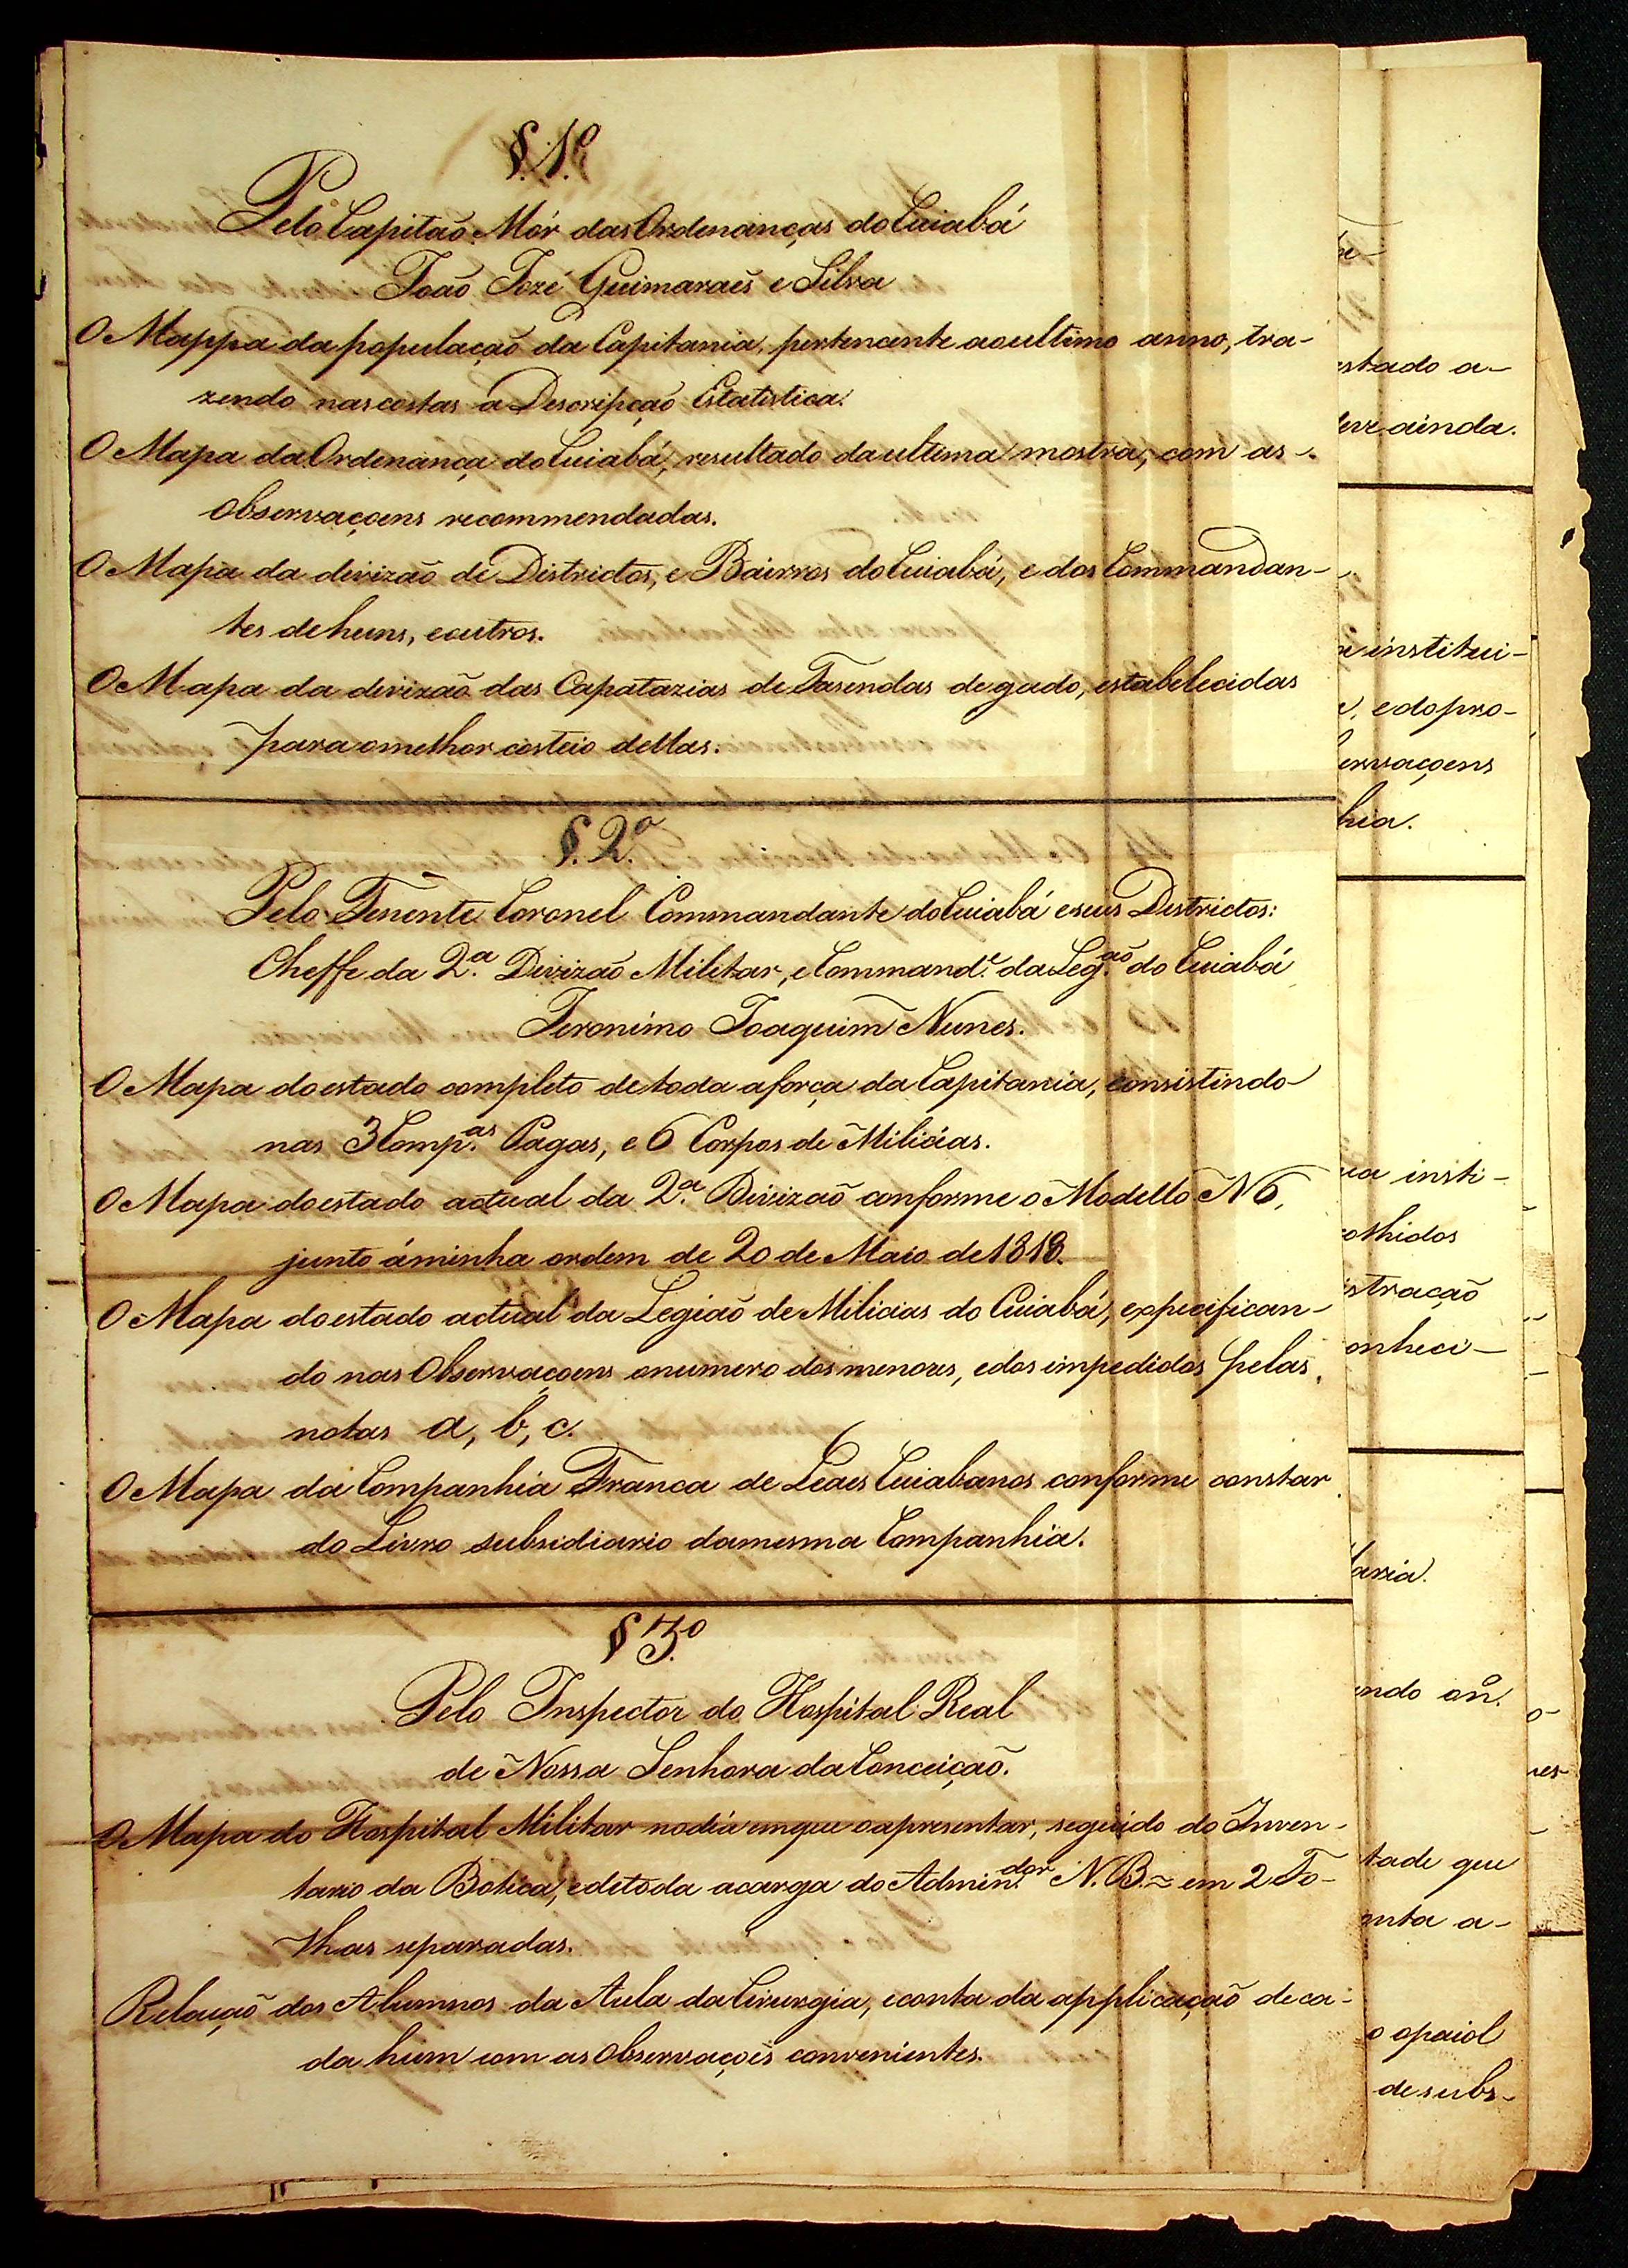 §. 1.º
Pelo Capitaõ Mór das Ordenanças do Cuiabá
Joaõ Jozé Guimaraẽs e Silva
O Mappa da populaçaõ da Capitania, pertencente ao ultimo anno, tra-
zendo nas costas a Descripçaõ Estatistica.
O Mapa da Ordenança do Cuiabá, resultado da ultima mostra, com as
observaçoens recommendadas.
O Mapa da divizaõ de Districtos, e Bairros do Cuiabá, e dos Commandan-
tes de huns, e outros.
O Mapa da divizaõ das Capatazias de Fasendas de gado, estabelecidas
para o melhor costeio dellas.
§. 2.º
Pelo Tenente Coronel Commandante do Cuiabá e seus Districtos:
Cheffe da 2.ª Divizaõ Militar, e Command.e da Leg.aõ do Cuiabá
Jeronimo Joaquim Nunes.
O Mapa do estado completo de toda a força da Capitania, consistindo
nas 3 Comp.as Pagas, e 6 Corpos de Milicias.
O Mapa do estado actual da 2.ª Divizaõ conforme o Modello N 6,
junto á minha ordem de 20 de Maio de 1818.
O Mapa do estado actual da Legiaõ de Milicias do Cuiabá, expecifican-
do nas Observaçoens o numero dos menores, e dos impedidos pelas
notas a, b, c.
O Mapa da Companhia Franca de Leaes Cuiabanos conforme constar
do Livro subsidiario da mesma Companhia.
§ 3.º
Pelo Inspector do Hospital Real
de Nossa Senhora da Conceiçaõ.
O Mapa do Hospital Militar no dia em que o apresentar, seguido do Inven-
tario da Botica, e de toda a carga do Admin.dor N.B. = em 2 Fo-
lhas separadas.
Relaçaõ dos Alumnos da Aula da Cirurgia, e conta da applicaçaõ de ca-
da hum com as Observaçoẽs convenientes.
estado a-
ainda.
institui-
e do pro-
ervaçoens
hia.
insti-
olhidos
straçaõ
onheci-
aria.
ndo
tade que
nta a-
o paiol
de subs-